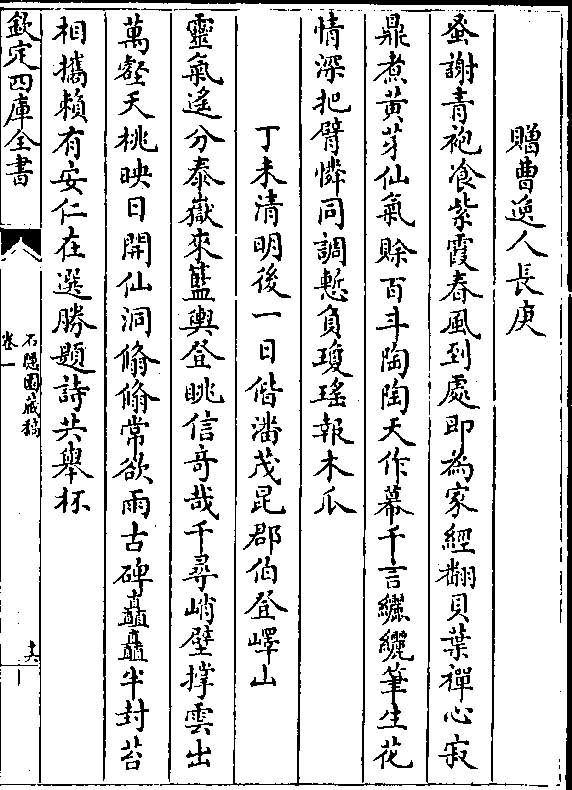 贈曹逸人長庚
蚤謝青袍飡紫霞春風到處即為家經翻貝葉禪心寂
鼎煮黃芽仙氣賒百斗陶陶天作幕千言纚纚筆生花
情深把臂憐同調慙負瓊瑤報木瓜
丁未清明後一日偕潘茂昆郡伯登嶧山
靈氣遙分泰嶽來籃輿登眺信奇哉千尋峭壁撐雲出
萬壑夭桃映日開仙洞翛翛常欲雨古碑矗矗半封苔
相攜賴有安仁在選勝題詩共舉杯
欽定四庫全書
石隱園藏稿
卷一
十六